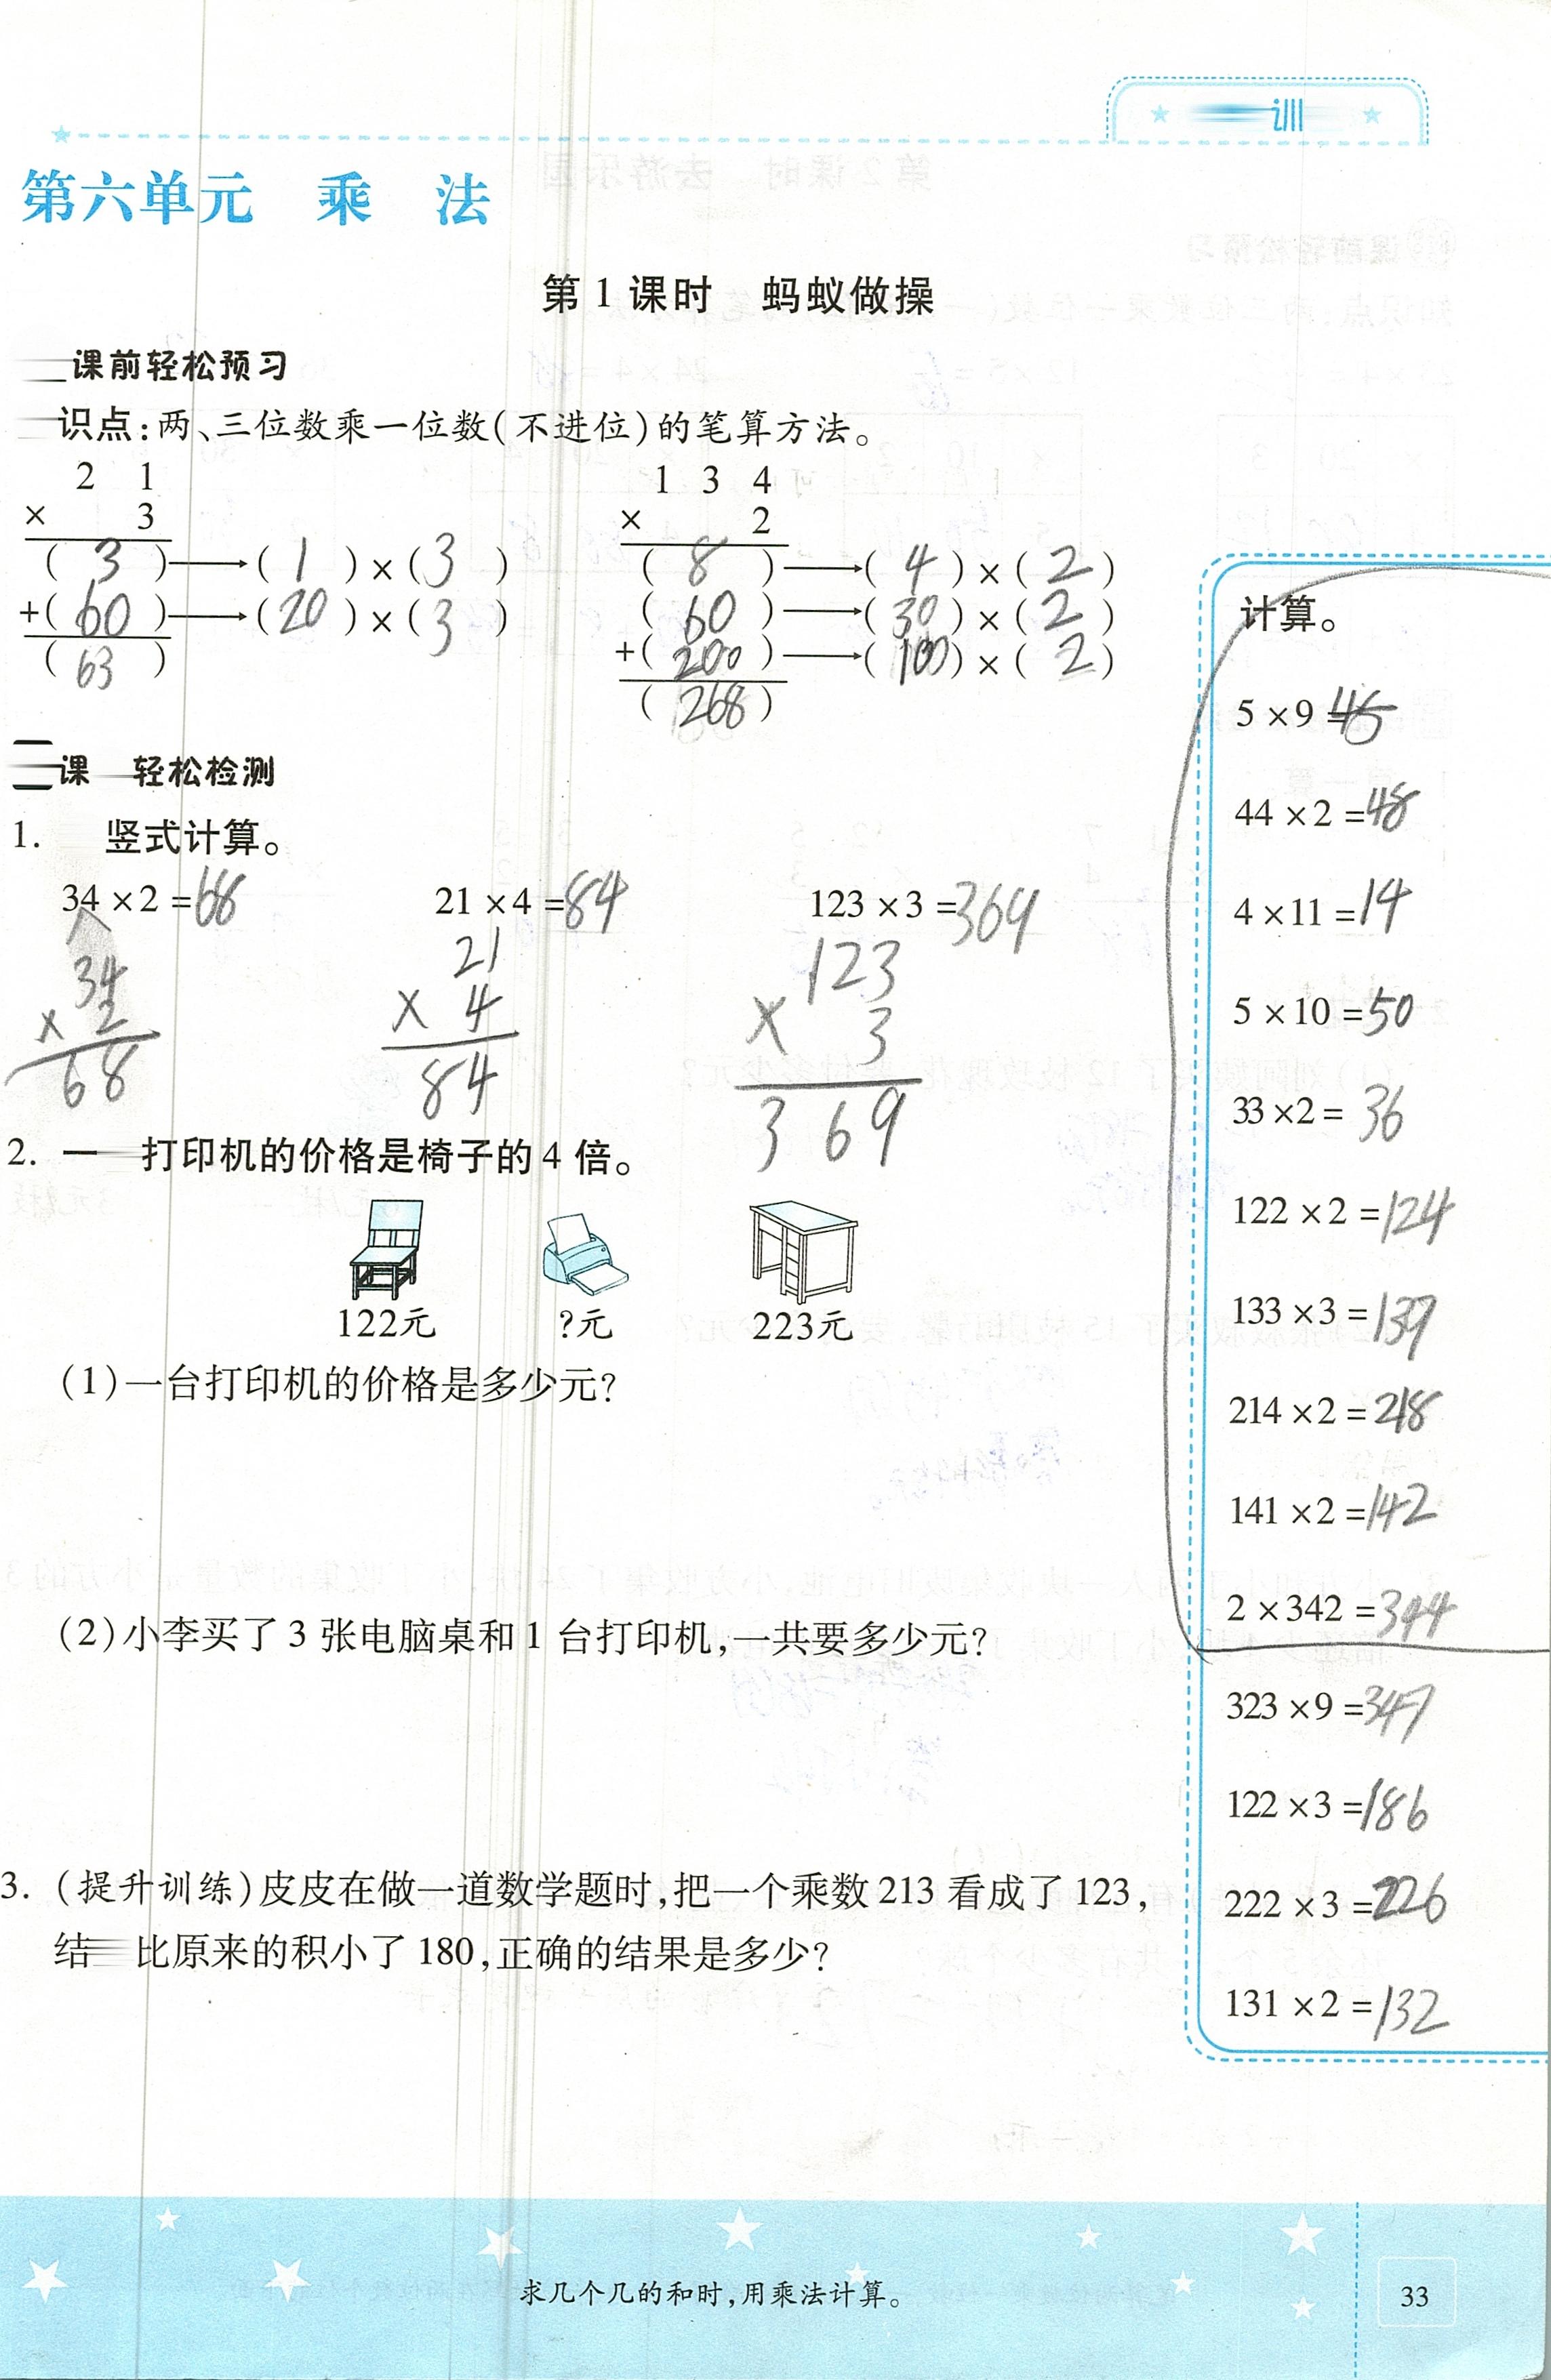 训
第六单元 乘 法
第1课时 蚂蚁做操
课前轻松预习
识点:两、三位数乘一位数(不进位)的笔算方法。
2 1
× 3
( 3 )→( 1 )×( 3 )
+( 60 )→( 20 )×( 3 )
( 63 )
1 3 4
× 2
( 8 )→( 4 )×( 2 )
( 60 )→( 30 )×( 2 )
+( 200 )→( 100 )×( 2 )
( 268 )
课 轻松检测
1. 竖式计算。
34×2=68 21×4=84 123×3=369
34
× 2
68
21
× 4
84
123
× 3
3 6 9
2. 一 打印机的价格是椅子的4倍。
122元 ?元 223元
(1)一台打印机的价格是多少元?
(2)小李买了3张电脑桌和1台打印机,一共要多少元?
3. (提升训练)皮皮在做一道数学题时,把一个乘数213看成了123,
结 比原来的积小了180,正确的结果是多少?
计算。
5×9=45
44×2=48
4×11=14
5×10=50
33×2=36
122×2=124
133×3=139
214×2=218
141×2=142
2×342=344
323×9=347
122×3=186
222×3=226
131×2=132
求几个几的和时,用乘法计算。
33